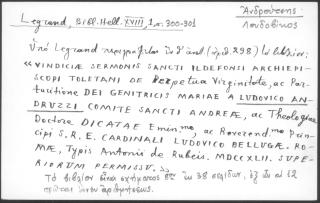 Legrand, Bibl. Hell. XVIII, 1, σ. 300-301
Ἀνδρούτσης
Λουδοβίκος
Ὑπὸ Legrand περιγράφεται ἐν (ἀριθ. 298) τὸ βιβλίον:
«VINDICIÆ SERMONIS SANCTI ILDEFONSI ARCHIEPI-
SCOPI TOLETANI DE Perpetua Virginitate, ac Par-
turitione DEI GENITRICIS MARIAE A LUDOVICO AN-
DRUZZI COMITE SANCTI ANDREÆ, ac Theologiæ
Doctore DICATAE Emin.mo ac Reverend.mo Prin-
cipi S. R. E. CARDINALI LUDOVICO BELLUGA. RO-
MÆ, Typis Antonii de Rubeis. MDCCXLII. SUPE-
RIORUM PERMISSU.»
Τὸ βιβλίον εἶναι σχήματος 8ου ἐκ 38 σελίδων, ἐξ ὧν αἱ 12
πρῶται ἄνευ ἀριθμήσεως.